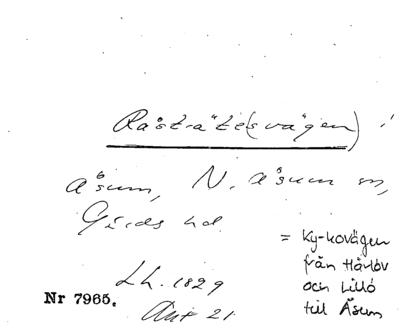 Råstråte(svägen)
Åsum, N. Åsum sn,
Gärds hd.
= Kyrkovägen
från Härlöv
och Lillö
till Åsum
Lh. 1829
Akt 21.
Nr 7965.